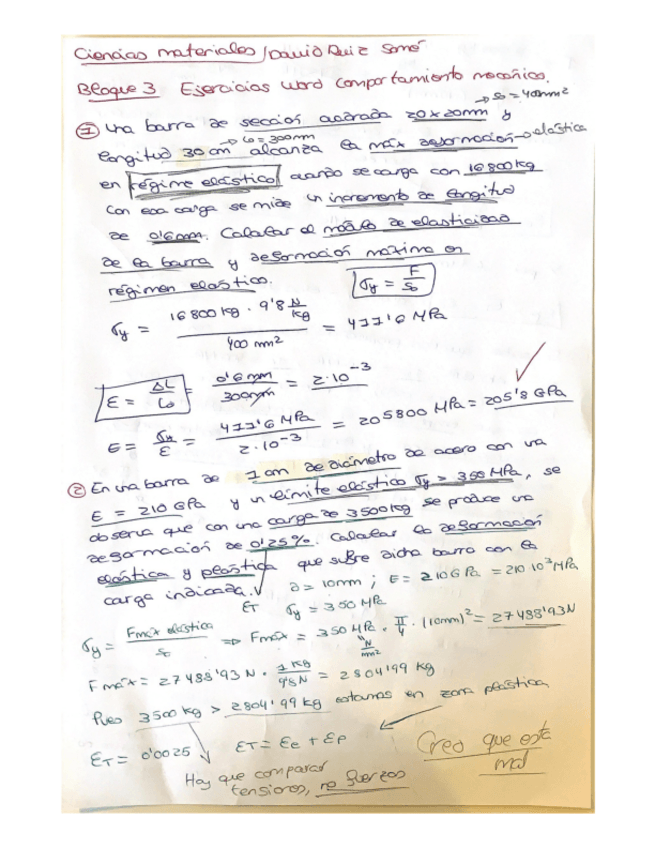 Ciencias materiales / David Ruiz Somé
Bloque 3 Ejercicios word comportamiento mecánico.
→ So = 400mm²
① Una barra de sección acerada 20x20mm y
→ Lo = 300mm
longitud 30 cm alcanza la máx deformación → elástica
en régimen elástico cuando se carga con 16800kg
Con esa carga se mide un incremento de longitud
de 0'6mm. Calcular el módulo de elasticidad
de la barra y deformación máxima en
régimen elastico.
σy = F / So
σy = 16800 kg · 9'8 N/kg / 400 mm² = 411'6 MPa
ε = ΔL / Lo = 0'6mm / 300mm = 2·10⁻³
E = σy / ε = 411'6 MPa / 2·10⁻³ = 205800 MPa = 205'8 GPa
② En una barra de 1 cm de diámetro de acero con una
E = 210 GPa y un límite elástico σy > 350 MPa, se
observa que con una carga de 3500kg se produce una
deformación de 0'25%. Calcular la deformación
elástica y plástica que sufre dicha barra con la
carga indicada.
εT
d = 10mm ; E = 210 GPa = 210·10³ MPa
σy = 350 MPa
σy = Fmáx elástica / So ⇒ Fmáx = 350 MPa · π/4 · (10mm)² = 27488'93N
N/mm²
Fmáx = 27488'93 N · 1 kg / 9'8 N = 2804'99 kg
Pues 3500 kg > 2804'99 kg estamos en zona plástica
εT = 0'0025 εT = εe + εp
Creo que este
mal
Hay que comparar
tensiones, no fuerzos